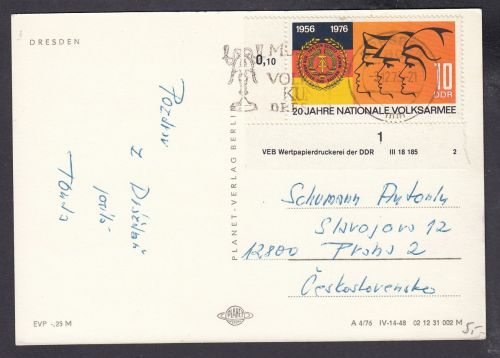 DRESDEN
1956 1976
10
DDR
20 JAHRE NATIONALE VOLKSARMEE
0,10
1
VEB Wertpapierdruckerei der DDR III 18 185 2
Pozdrav
z
Tonda
PLANET-VERLAG BERLIN
Schumann Antonín
Slavojova 12
12800 Praha 2
Československo
EVP -,25 M
PLANET
A 4/76 IV-14-48 02 12 31 002 M
5,-